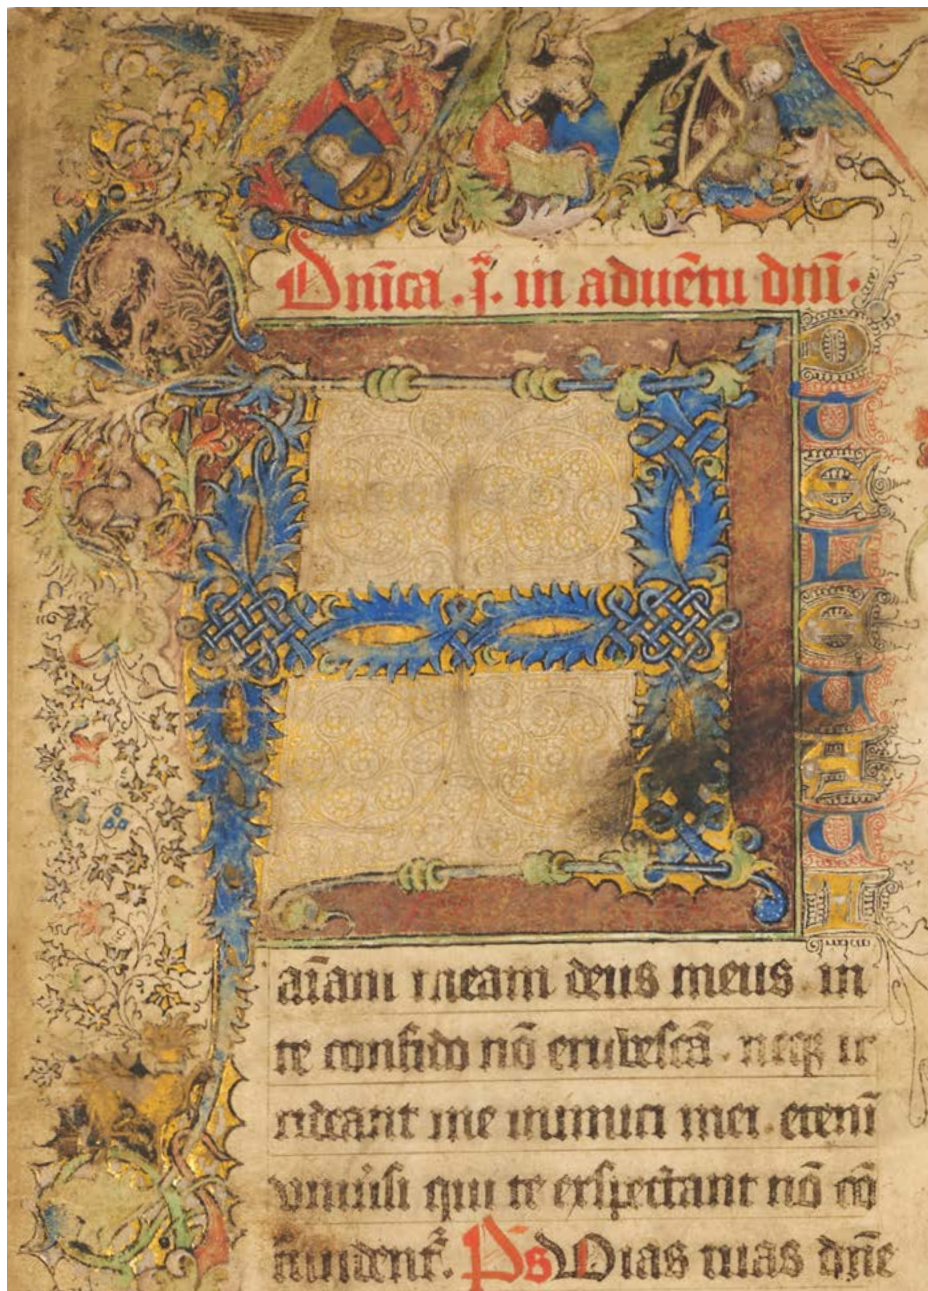 Dn̄ica . ī . in aduētu dn̄i .
A
DTELEUAUI
aīam meam deus meus . in
te confido nō erubescā . neqꝫ ir
rideant me inimici mei . etenī
vniūsi qui te exspectant nō cō
fundent᷑. Ps Vias tuas dn̄e